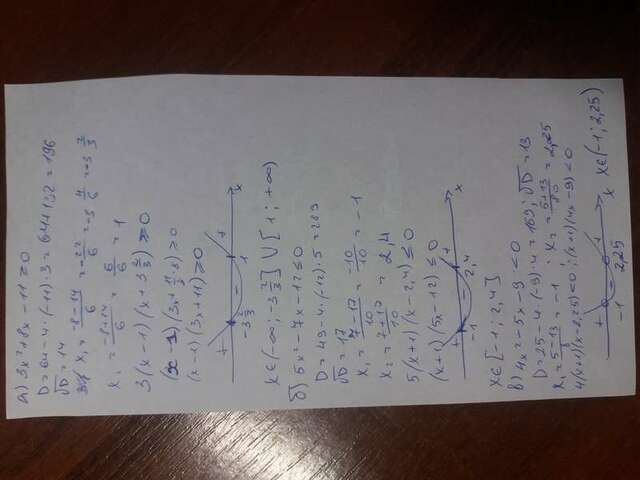 а) 3x²+8x-11≥0
D=64-4·(-11)·3=64+132=196
√D=14
x₁=\frac{-8-14}{6}=-\frac{22}{6}=-3\frac{4}{6}=-3\frac{2}{3}
x₁=\frac{-8+14}{6}=\frac{6}{6}=1
3(x-1)(x+3\frac{2}{3})≥0
(x-1)(3x+\frac{11}{3}·3)≥0
(x-1)(3x+11)≥0
+ - +
-3\frac{2}{3} 1 x
x∈(-∞;-3\frac{2}{3}]∪[1;+∞)
б) 5x²-7x-12≤0
D=49-4·(-12)·5=289
√D=17
x₁=\frac{7-17}{10}=\frac{-10}{10}=-1
x₂=\frac{7+17}{10}=2,4
5(x+1)(x-2,4)≤0
(x+1)(5x-12)≤0
+ - +
-1 2,4 x
x∈[-1;2,4]
в) 4x²-5x-9<0
D=25-4·(-9)·4=169; √D=13
x₁=\frac{5-13}{8}=-1; x₂=\frac{5+13}{80}=2,25
4(x+1)(x-2,25)<0; (x+1)(4x-9)<0
+ - +
-1 2,25 x x∈(-1;2,25)